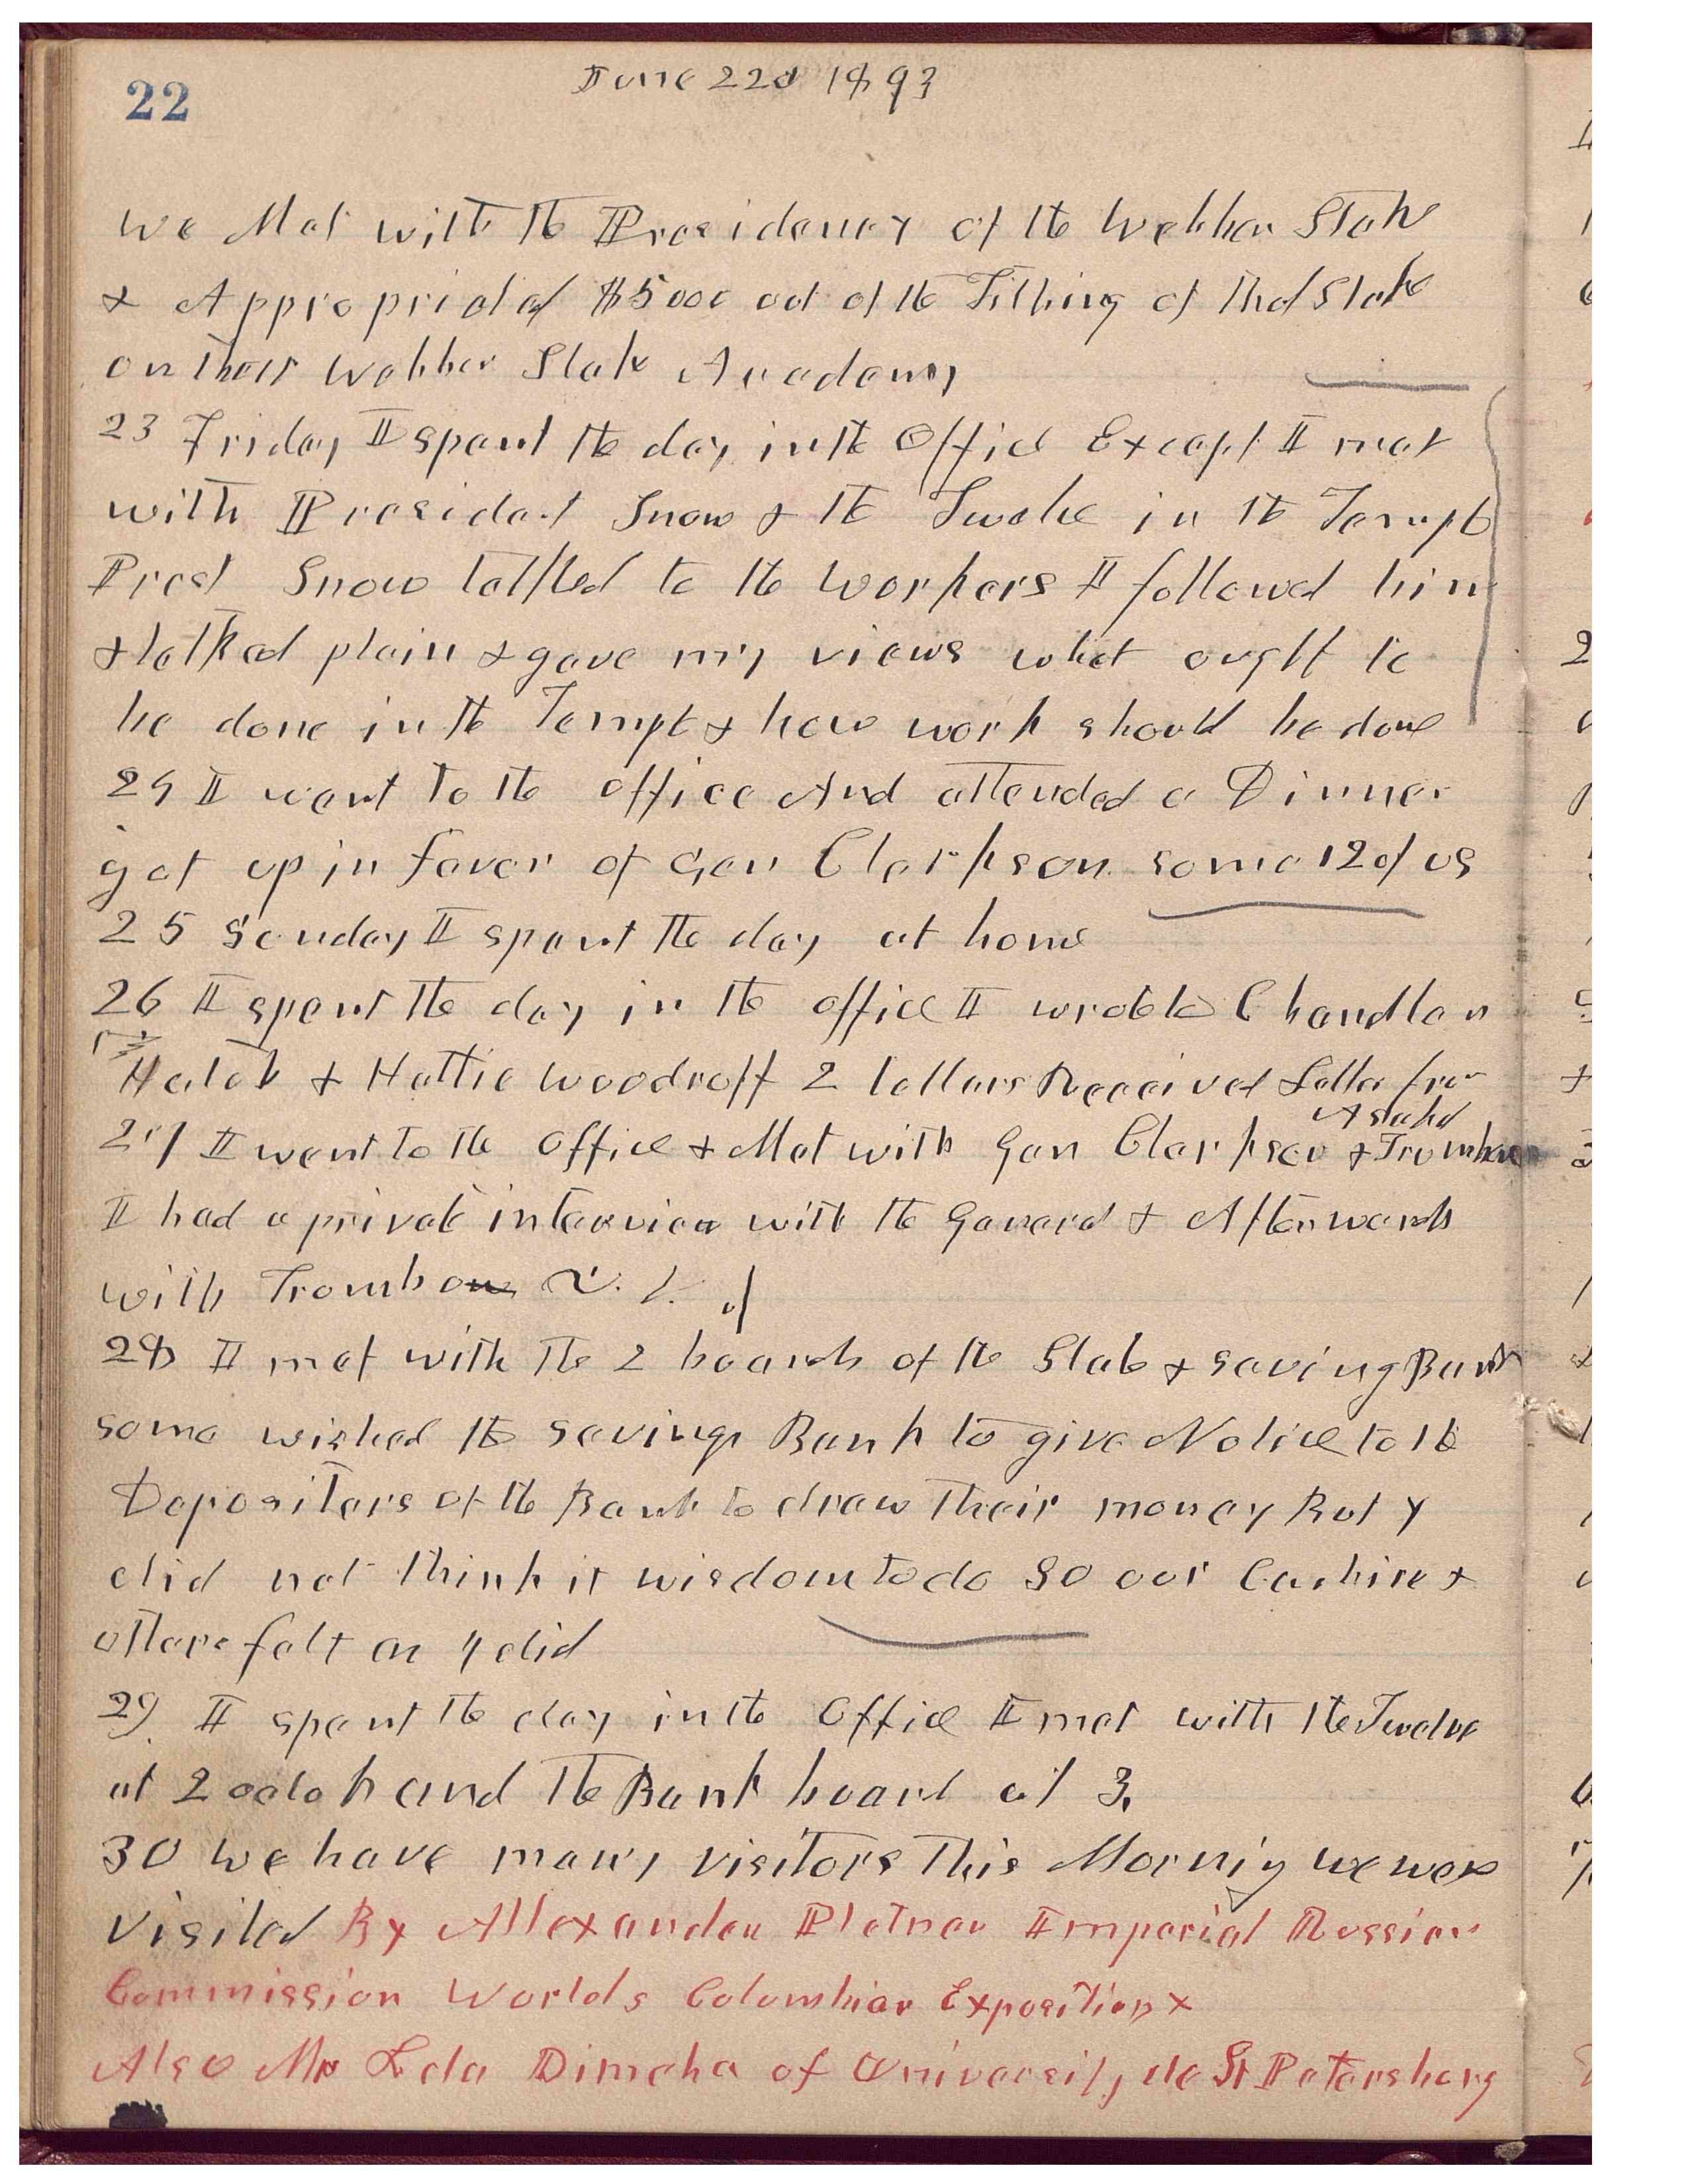 22
June 22d 1893
we Met with the Presidency of the Webber Stake
& Appropriated $5000 out of the Tithing of that Stake
on their Webber Stake Academy
23 Friday I spent the day in the Office Except I met
with President Snow & the Twelve in the Temple
Prest Snow talked to the workers I followed him
& talked plain & gave my views what ought to
be done in the Temple & how work should be done
24 I went to the office And attended a Dinner
got up in favor of Gen Clarkson some 12 of us
25 Sunday I spent the day at home
26 I spent the day in the office I wrote to Chandler
& Hattie Woodruff 2 letters Received Letter from
Asahel
27 I went to the Office & Met with Gen Clarkson &
I had a private interview with the General & Afterwards
with
28 I met with the 2 boards of the State & saving Bank
some wished the savings Bank to give Notice to the
Depositers of the Bank to draw their money But I
did not think it wisdom to do so our Cashire &
others felt as I did
29 I spent the day in the Office I met with the Twelve
at 2 oclok and the Bank board at 3.
30 we have many visitors this Morning we were
visited By Allexander Imperial Russian
Commission Worlds Columbian Exposition &
Also Mr of University de St Petersburg